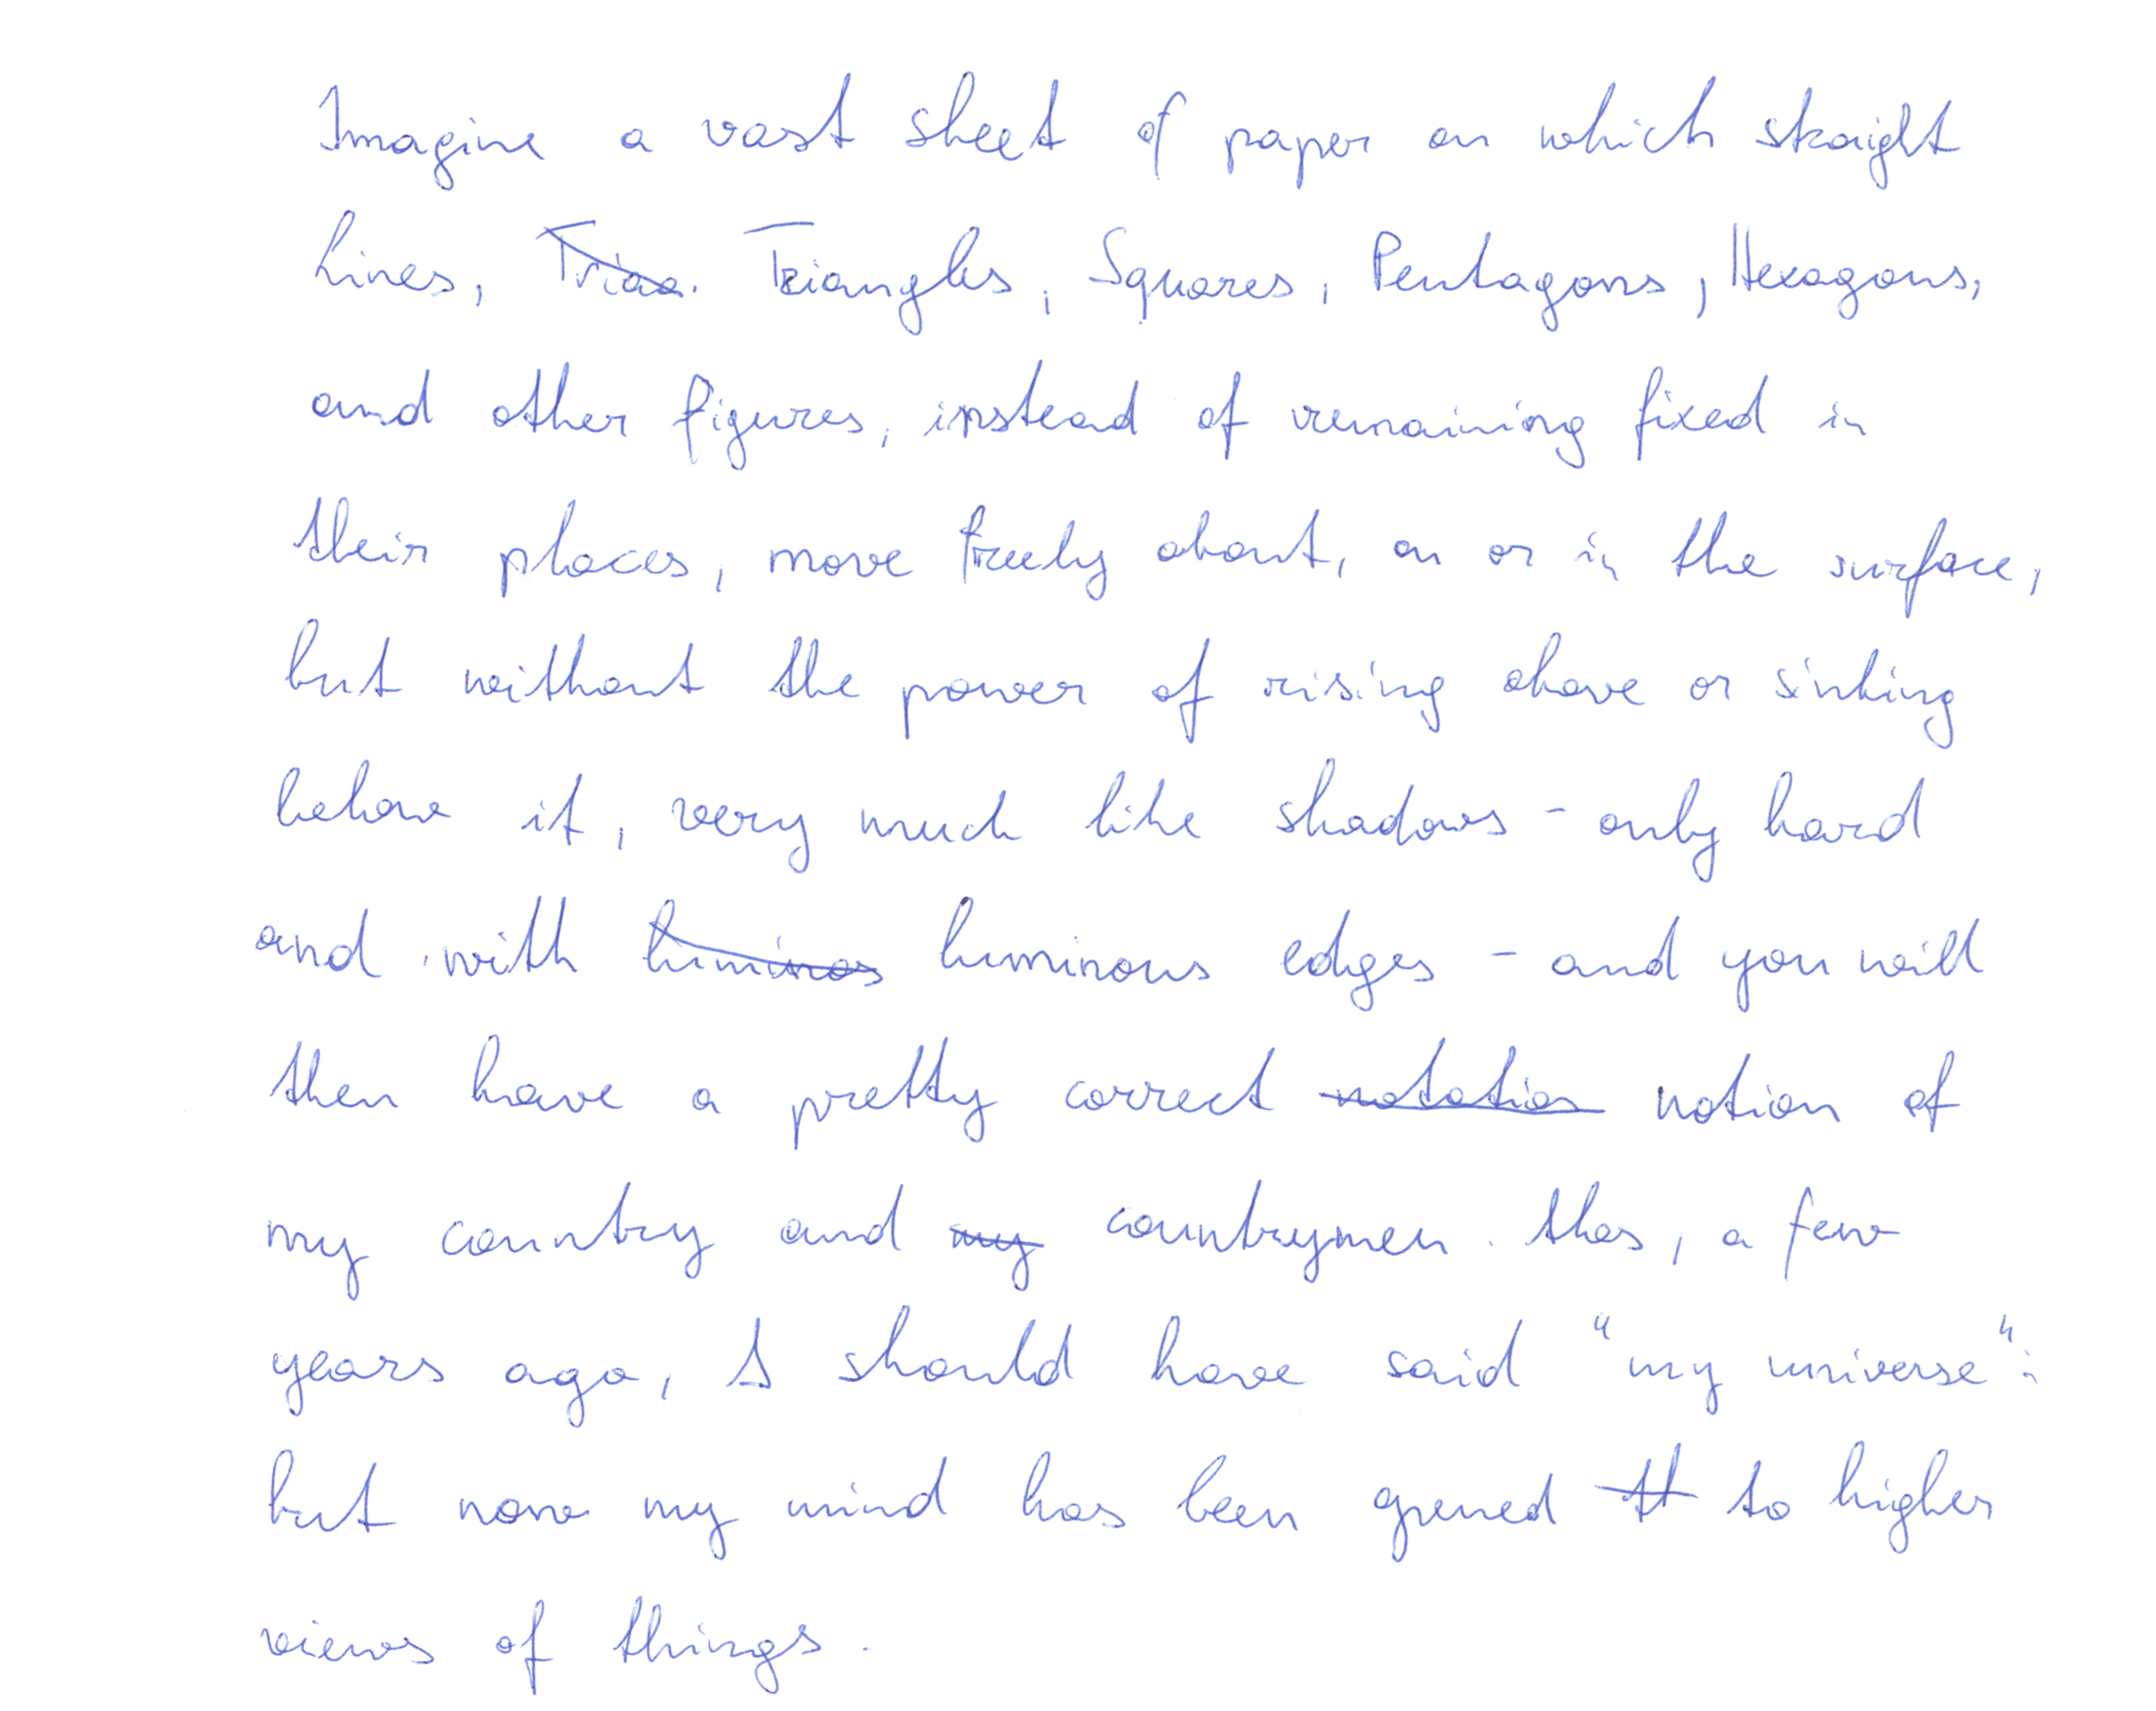 Imagine a vast sheet of paper on which straight
Lines, Triangles, Squares, Pentagons, Hexagons,
and other figures, instead of remaining fixed in
their places, move freely about, on or in the surface,
but without the power of rising above or sinking
below it, very much like shadows - only hard
and with luminous edges - and you will
then have a pretty correct notation notion of
my country and my countrymen. Alas, a few
years ago, I should have said "my universe":
but now my mind has been opened to higher
views of things.